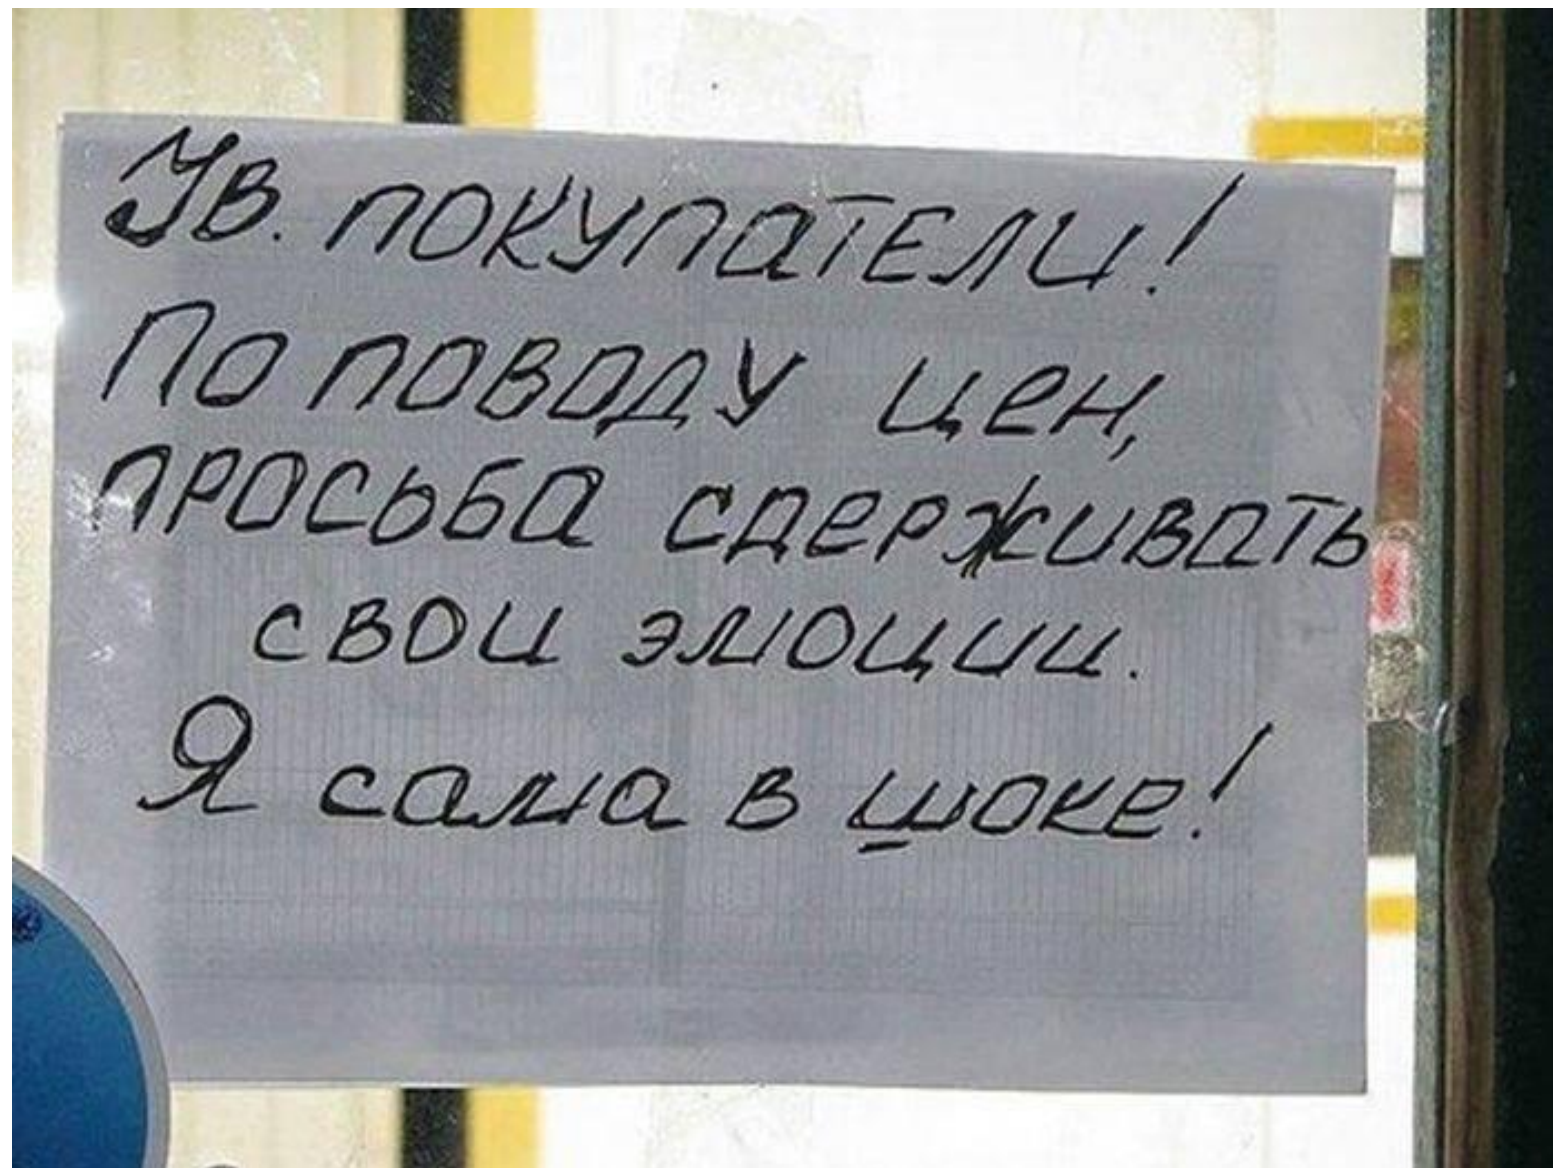 Ув. покупатели!
По поводу цен,
просьба сдерживать
свои эмоции.
Я сама в шоке!